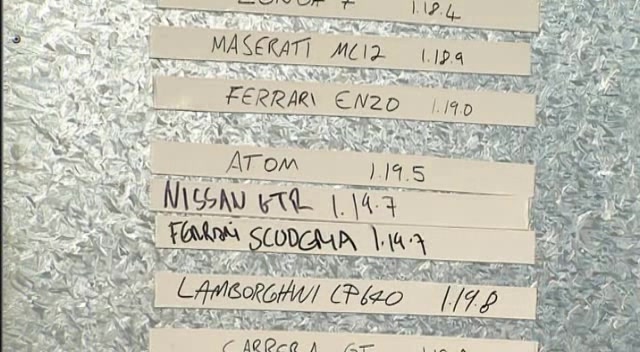 ZONDA F 1.18.4
MASERATI MC12 1.18.9
FERRARI ENZO 1.19.0
ATOM 1.19.5
NISSAN GTR 1.19.7
FERRARI SCUDERIA 1.19.7
LAMBORGHINI LP640 1.19.8
CARRERA GT